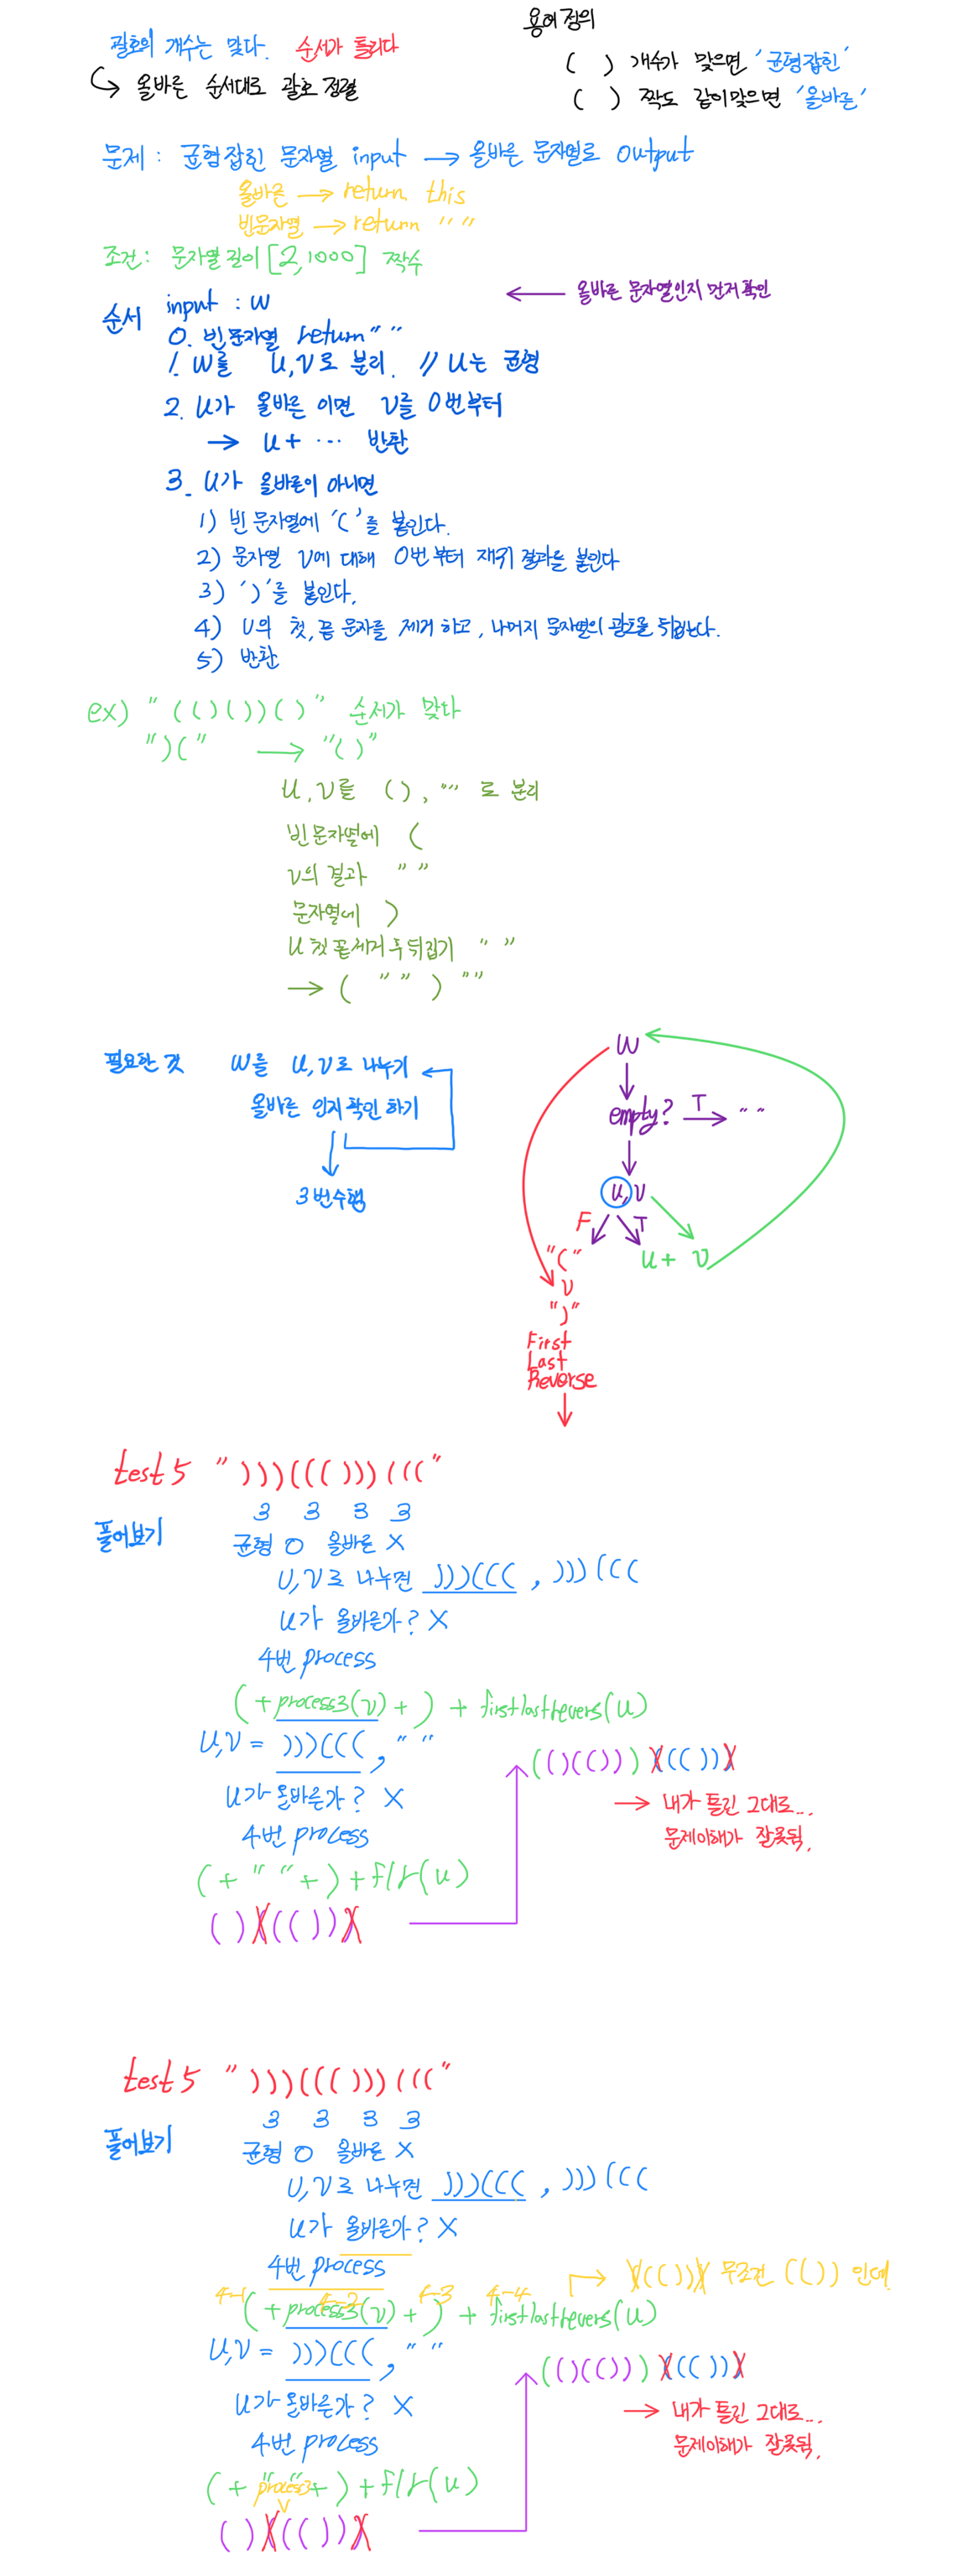 용어 정의
괄호의 개수는 맞다. 순서가 틀리다
↳ 올바른 순서대로 괄호 정렬
( ) 개수가 맞으면 '균형잡힌'
( ) 짝도 같이맞으면 '올바른'
문제 : 균형잡힌 문자열 input → 올바른 문자열로 output
올바른 → return this
빈문자열 → return " "
조건 : 문자열 길이 [2, 1000] 짝수
← 올바른 문자열인지 먼저 확인
순서 input : w
0. 빈문자열 return " "
1. w를 u, v로 분리. // u는 균형
2. u가 올바른 이면 v를 0번부터
→ u + ... 반환
3. u가 올바른이 아니면
1) 빈 문자열에 '(' 를 붙인다.
2) 문자열 v에 대해 0번부터 재귀 결과를 붙인다
3) ')' 를 붙인다.
4) u의 첫, 끝 문자를 제거 하고, 나머지 문자열의 괄호를 뒤집는다.
5) 반환
ex) "(()())()" 순서가 맞다
")(" → "()"
u, v를 (), "" 로 분리
빈 문자열에 (
v의 결과 " "
문자열에 )
u 첫 끝제거 후 뒤집기 " "
→ ( " " ) ""
필요한 것 w를 u, v로 나누기
올바른 인지 확인 하기
3번수행
w
empty? T → " "
u, v
F T
"(" u + v
v
")"
First
Last
Reverse
test 5 ")))((()))((("
3 3 3 3
풀어보기 균형 O 올바른 X
u, v로 나누면 )))(((, )))(((
u가 올바른가? X
4번 process
( + process3(v) + ) + firstlastrevers(u)
u, v = )))(((, " "
u가 올바른가? X
4번 process
( + " " + ) + flr(u)
()((()))
(()(()))((()))
→ 내가 틀린 그대로...
문제이해가 잘못됨.
test 5 ")))((()))((("
3 3 3 3
풀어보기 균형 O 올바른 X
u, v로 나누면 )))(((, )))(((
u가 올바른가? X
4번 process
→ ((())) 무조건 (()) 인데
4-1 4-2 4-3 4-4
( + process3(v) + ) + firstlastrevers(u)
u, v = )))(((, " "
u가 올바른가? X
4번 process
( + " " + ) + flr(u)
process3
v
()((()))
(()(()))((()))
→ 내가 틀린 그대로...
문제이해가 잘못됨.